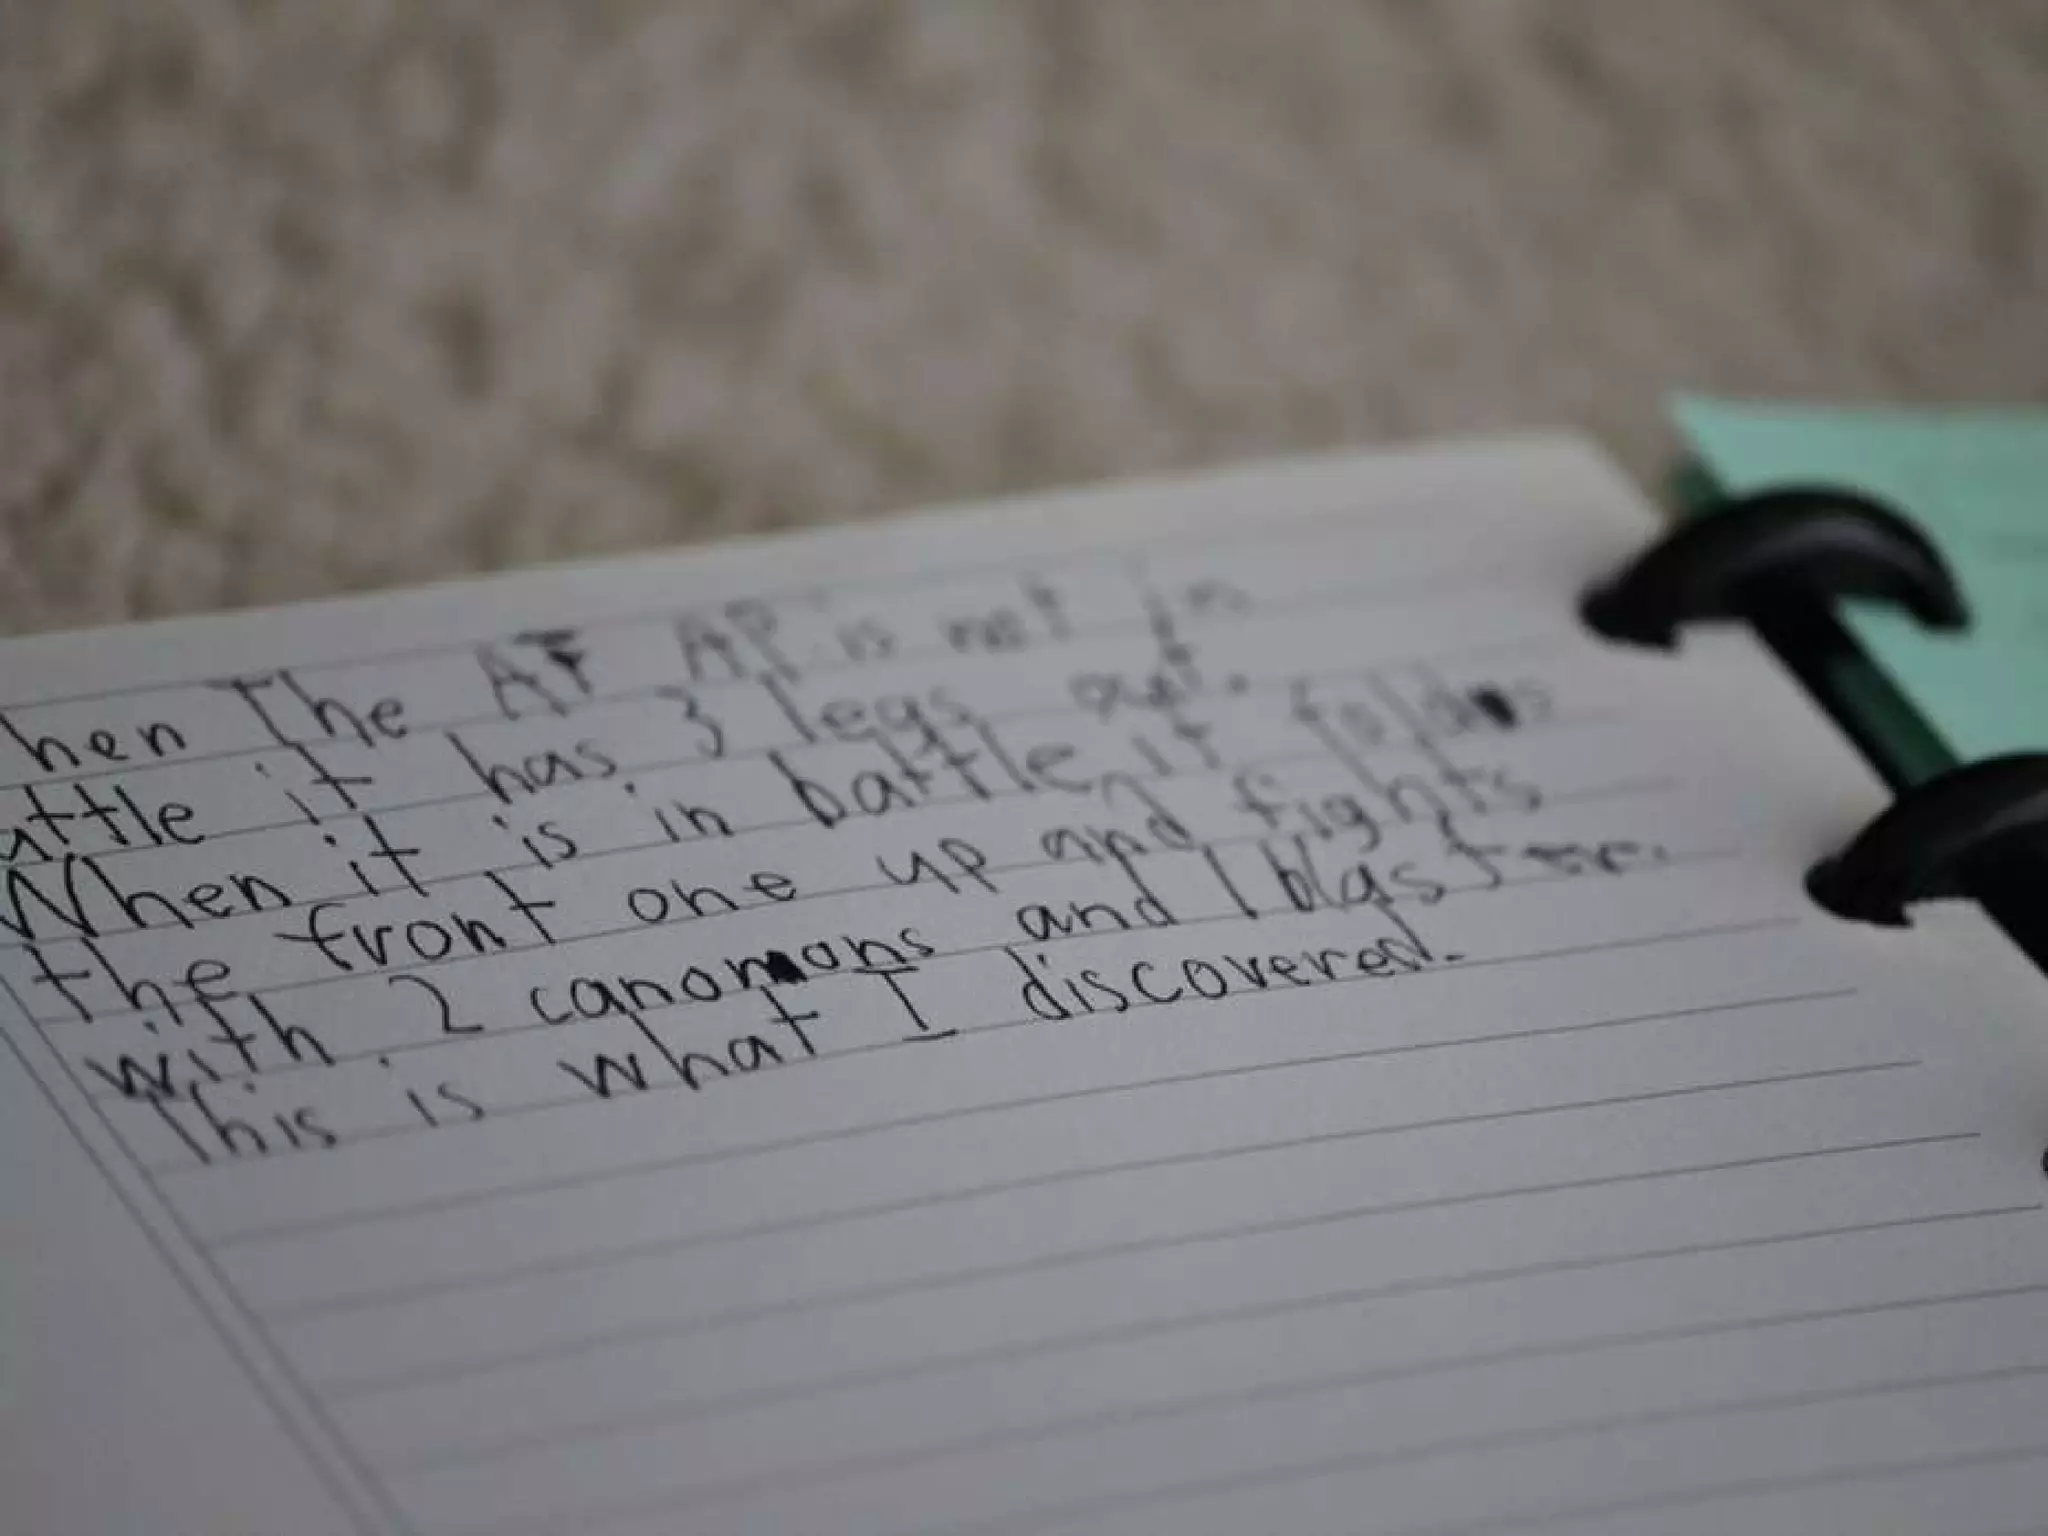 hen The AT AP is not in
attle it has 3 legs out.
When it is in battle, it folds
the front one up and fights
with 2 canomons and 1 blaster.
This is what I discovered.